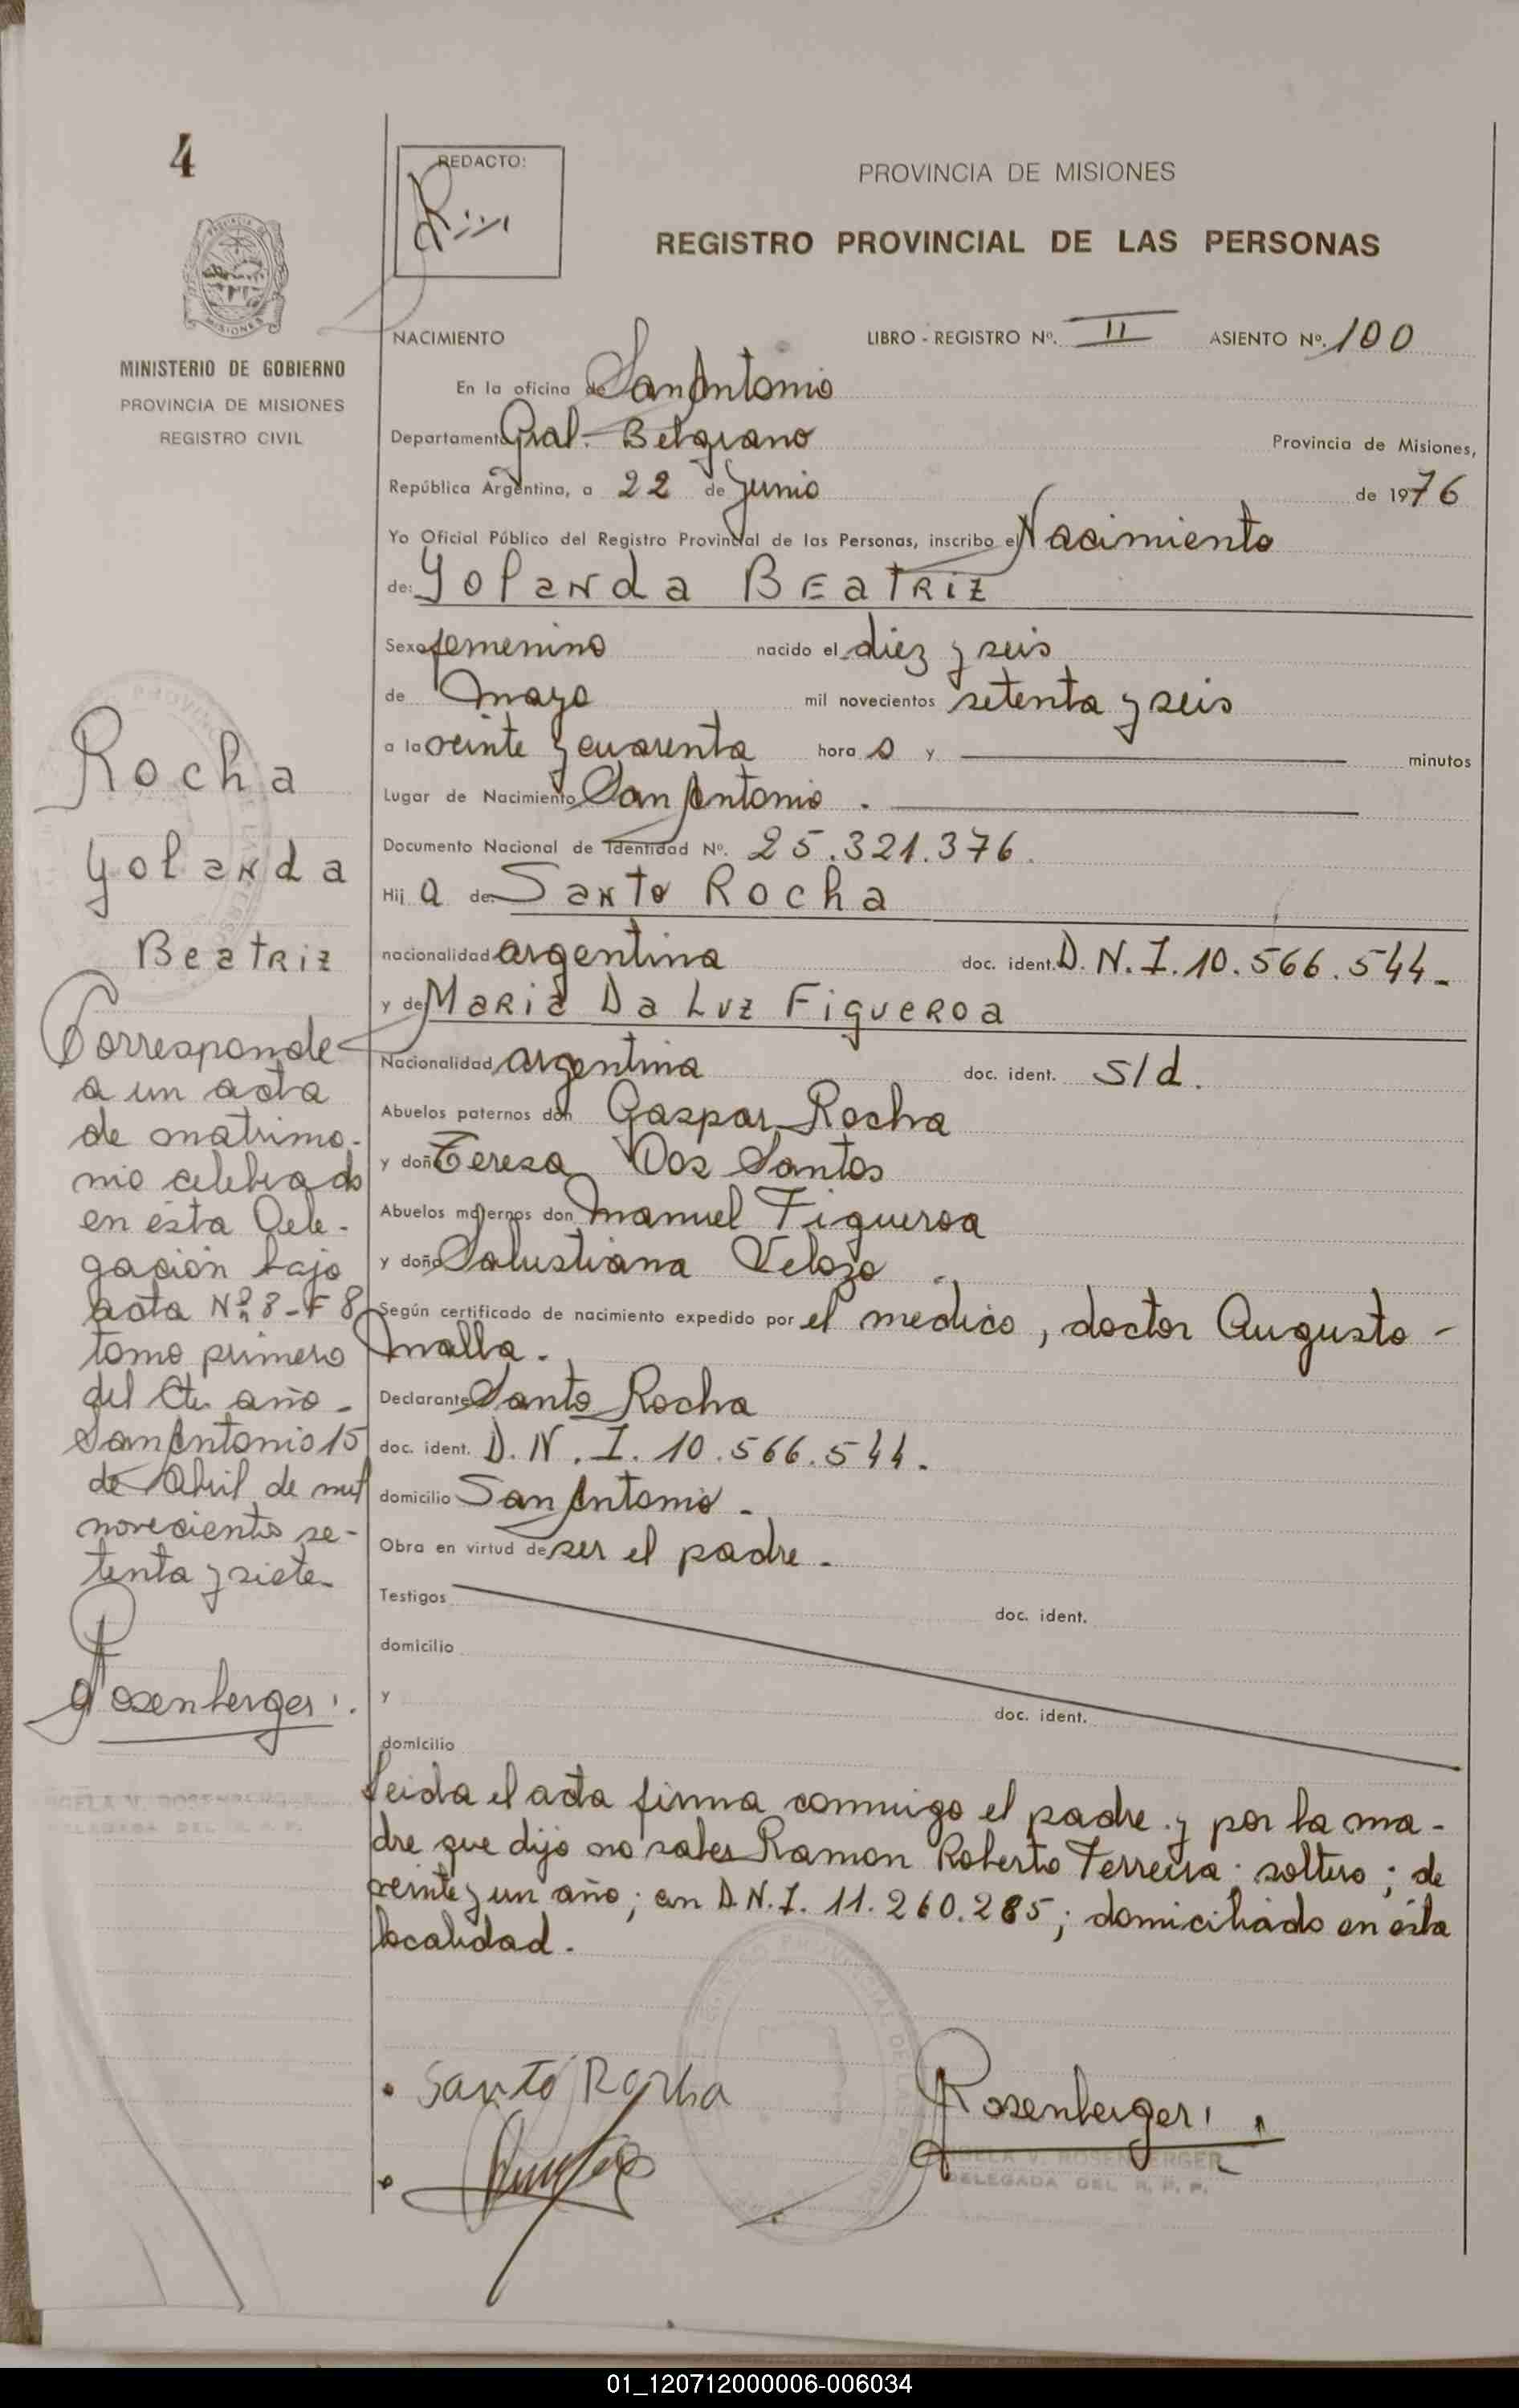 4
REDACTO:
PROVINCIA DE MISIONES
REGISTRO PROVINCIAL DE LAS PERSONAS
MISIONES
MINISTERIO DE GOBIERNO
PROVINCIA DE MISIONES
REGISTRO CIVIL
NACIMIENTO LIBRO - REGISTRO Nº. II ASIENTO Nº. 100
En la oficina de San Antonio
Departamento Gral. Belgrano Provincia de Misiones,
República Argentina, a 22 de Junio de 1976
Yo Oficial Público del Registro Provincial de las Personas, inscribo el Nacimiento
de: Yolanda Beatriz
Sexo femenino nacido el diez y seis
de mayo mil novecientos setenta y seis
a la veinte y cuarenta hora s y minutos
Lugar de Nacimiento San Antonio.
Documento Nacional de Identidad Nº. 25.321.376.
Hij a de: Santo Rocha
nacionalidad argentina doc. ident. D.N.I. 10.566.544-
y de Maria Da Luz Figueroa
Nacionalidad argentina doc. ident. s/d.
Abuelos paternos don Gaspar Rocha
y doña Teresa Dos Santos
Abuelos maternos don Manuel Figueroa
y doña Salustiana Velozo.
Según certificado de nacimiento expedido por el medico, doctor Augusto -
Malla.
Declarante Santo Rocha
doc. ident. D.N.I. 10.566.544.
domicilio San Antonio -
Obra en virtud de ser el padre.
Testigos doc. ident.
domicilio
y doc. ident.
domicilio
Leida el acta firma conmigo el padre y por la ma-
dre que dijo no saber Ramon Roberto Ferreira; soltero; de
veinte y un año; con D.N.I. 11.260.285; domiciliado en ésta
localidad.
Santo Rocha
Rosenberger
ANGELA V. ROSENBERGER
DELEGADA DEL R. P. P.
Rocha
Yolanda
Beatriz
Corresponde
a un acta
de matrimo-
nio celebrado
en ésta Dele-
gación bajo
acta Nº 8-F 8
tomo primero
del Cte. año -
San Antonio 15
de Abril de mil
novecientos se-
tenta y siete-
Rosenberger
ANGELA V. ROSENBERGER
DELEGADA DEL R. P. P.
01_120712000006-006034